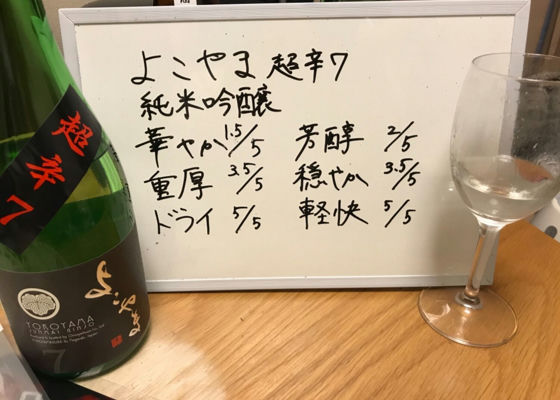 よこやま 超辛7
純米吟醸
華やか 1.5/5 芳醇 2/5
重厚 3.5/5 穏やか 3.5/5
ドライ 5/5 軽快 5/5
超辛7
よこやま
YOKOYAMA
JUNMAI GINJO
7